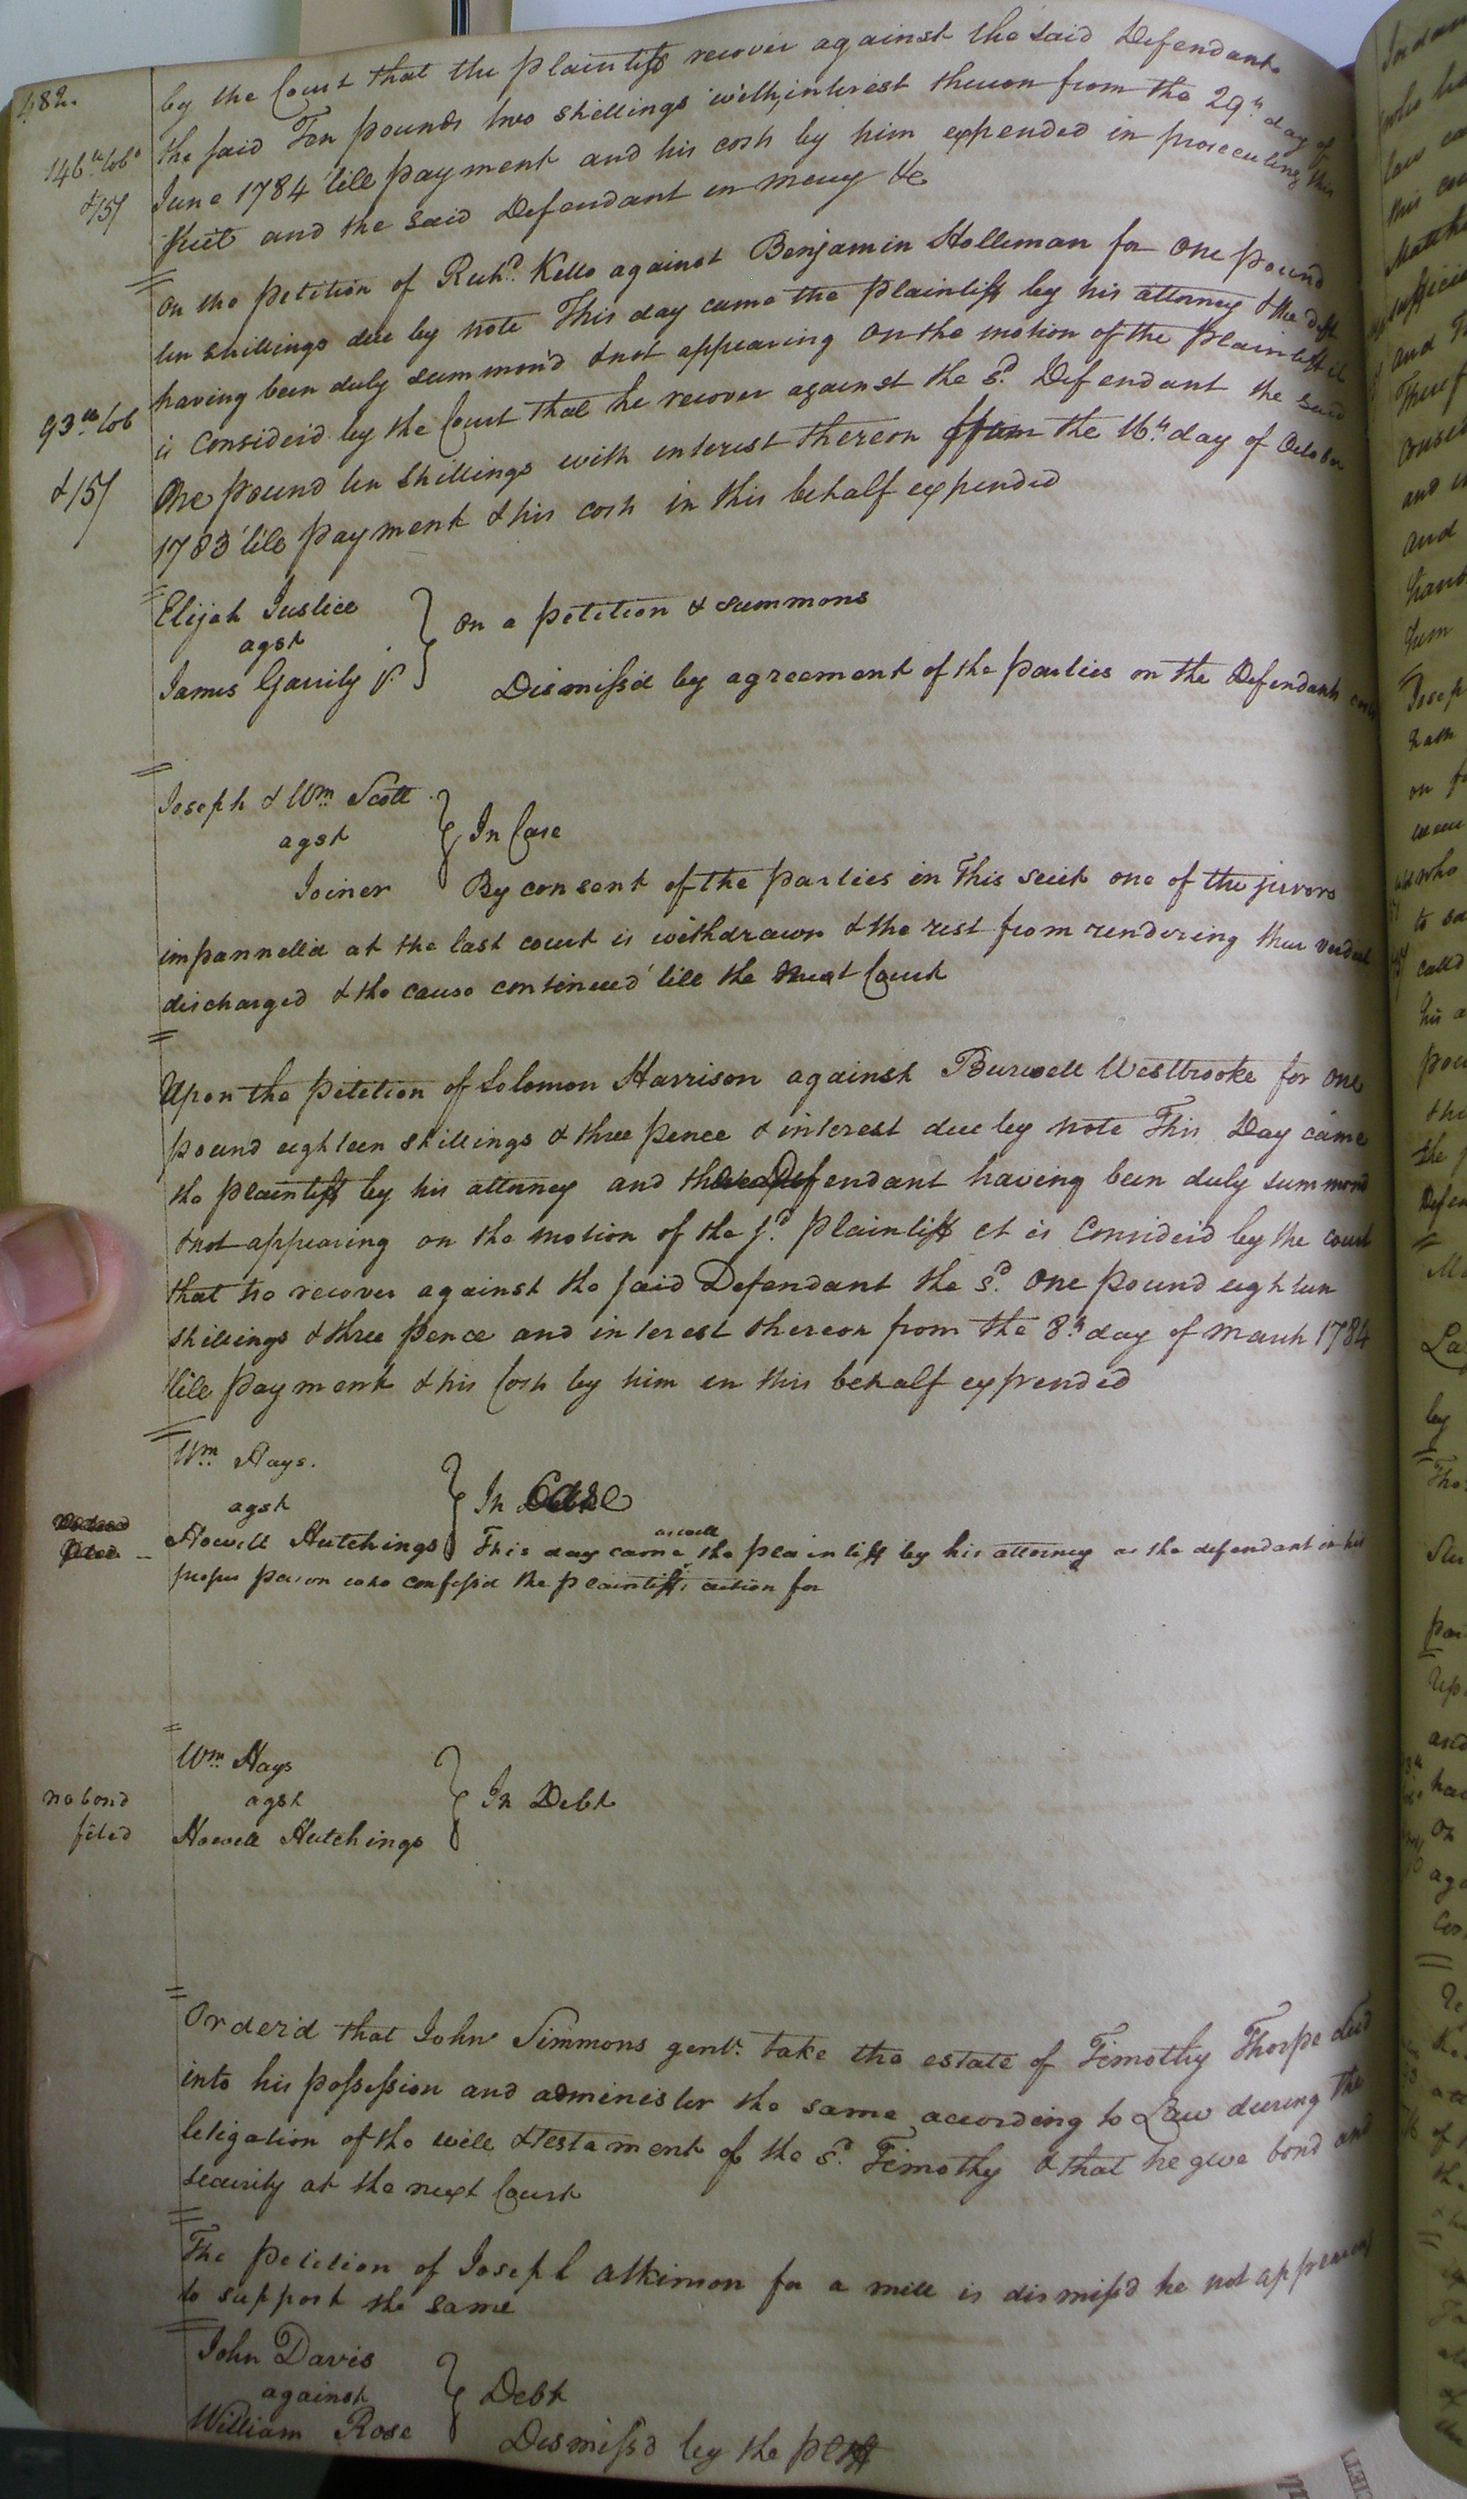 482.
by the Court that the plaintiff recover against the said Defendant
the said Ten pounds two shillings with interest thereon from the 29th day of
146 lb tobo
June 1784 till payment and his costs by him expended in prosecuting this
& 15/
suit and the said Defendant in mercy &c
On the petition of Richd. Kello against Benjamin Holleman for One pound
ten shillings due by note This day came the plaintiff by his attorney & the deft
having been duly summon'd & not appearing On the motion of the plaintiff it
is Consider'd by the Court that he recover against the sd. Defendant the said
93 lb tob
One pound ten shillings with interest thereon from the 16th day of October
& 15/
1783 till payment & his costs in this behalf expended
Elijah Justice
agst
James Garrily jr.
On a petition & summons
Dismiss'd by agreement of the parties on the Defendants costs
Joseph & Wm Scott
agst
Joiner
In Case
By consent of the parties in this suit one of the jurors
impannell'd at the last court is withdrawn & the rest from rendering their verdict
discharged & the cause continued till the next Court
Upon the petition of Solomon Harrison against Burwell Westbrooke for one
pound eighteen shillings & three pence & interest due by note This Day came
the plaintiff by his attorney and the Defendant having been duly summond
& not appearing on the motion of the sd. plaintiff it is Consider'd by the court
that he recover against the said Defendant the sd. One pound eighteen
shillings & three pence and interest thereon from the 8th day of march 1784
till payment & his Costs by him in this behalf expended
Wm Hays.
agst
Howell Hutchings
In Case
This day came as well the plaintiff by his attorney as the defendant in his
proper person who confess'd the plaintiffs action for
Wm Hays
agst
Howell Hutchings
In Debt
no bond
filed
Order'd that John Simmons gent. take the estate of Timothy Thorpe decd
into his possession and administer the same according to Law during the
letigation of the will & testament of the sd. Timothy & that he give bond and
security at the next Court
The petition of Joseph Atkinson for a mill is dismiss'd he not appearing
to support the same
John Davis
against
William Rose
Debt
Dismiss'd by the pltff